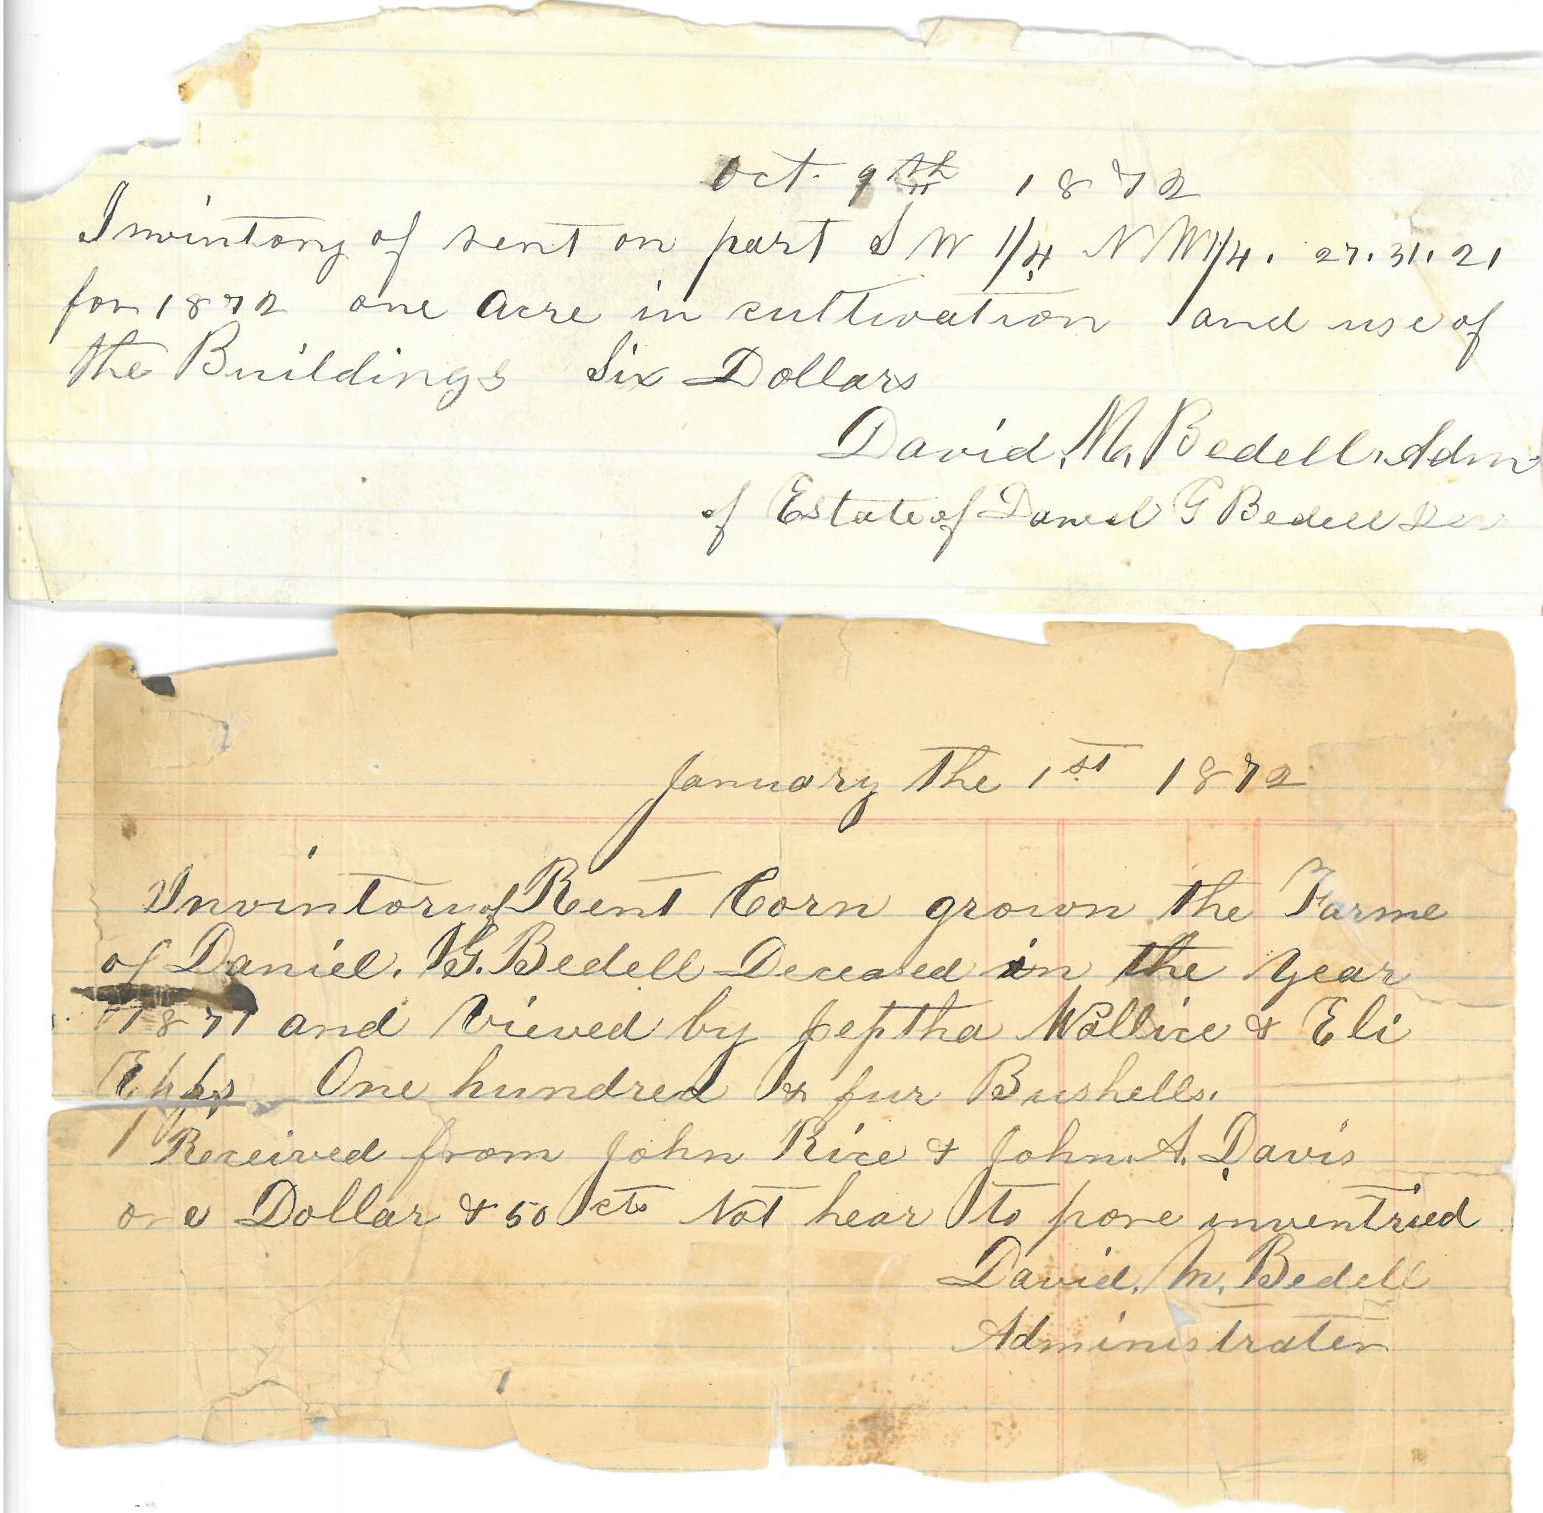 Oct. 9th 1872
Invintory of rent on part S W 1/4 N W 1/4. 27.31.21
for 1872 one Acre in cultivation and use of
the Buildings Six Dollars
David. M. Bedell. Adm
of Estate of Daniel G Bedell Dec
January the 1st 1872
Invintory of Rent Corn grown the Farme
of Daniel. G. Bedell Deceased in the year
1871 and Viewed by Jeptha Wallice & Eli
Epps One hundred & fur Bushells.
Received from John Rice & John. A. Davis
one Dollar & 50 cts Not hear to fore inventried
David. M. Bedell
Administrater